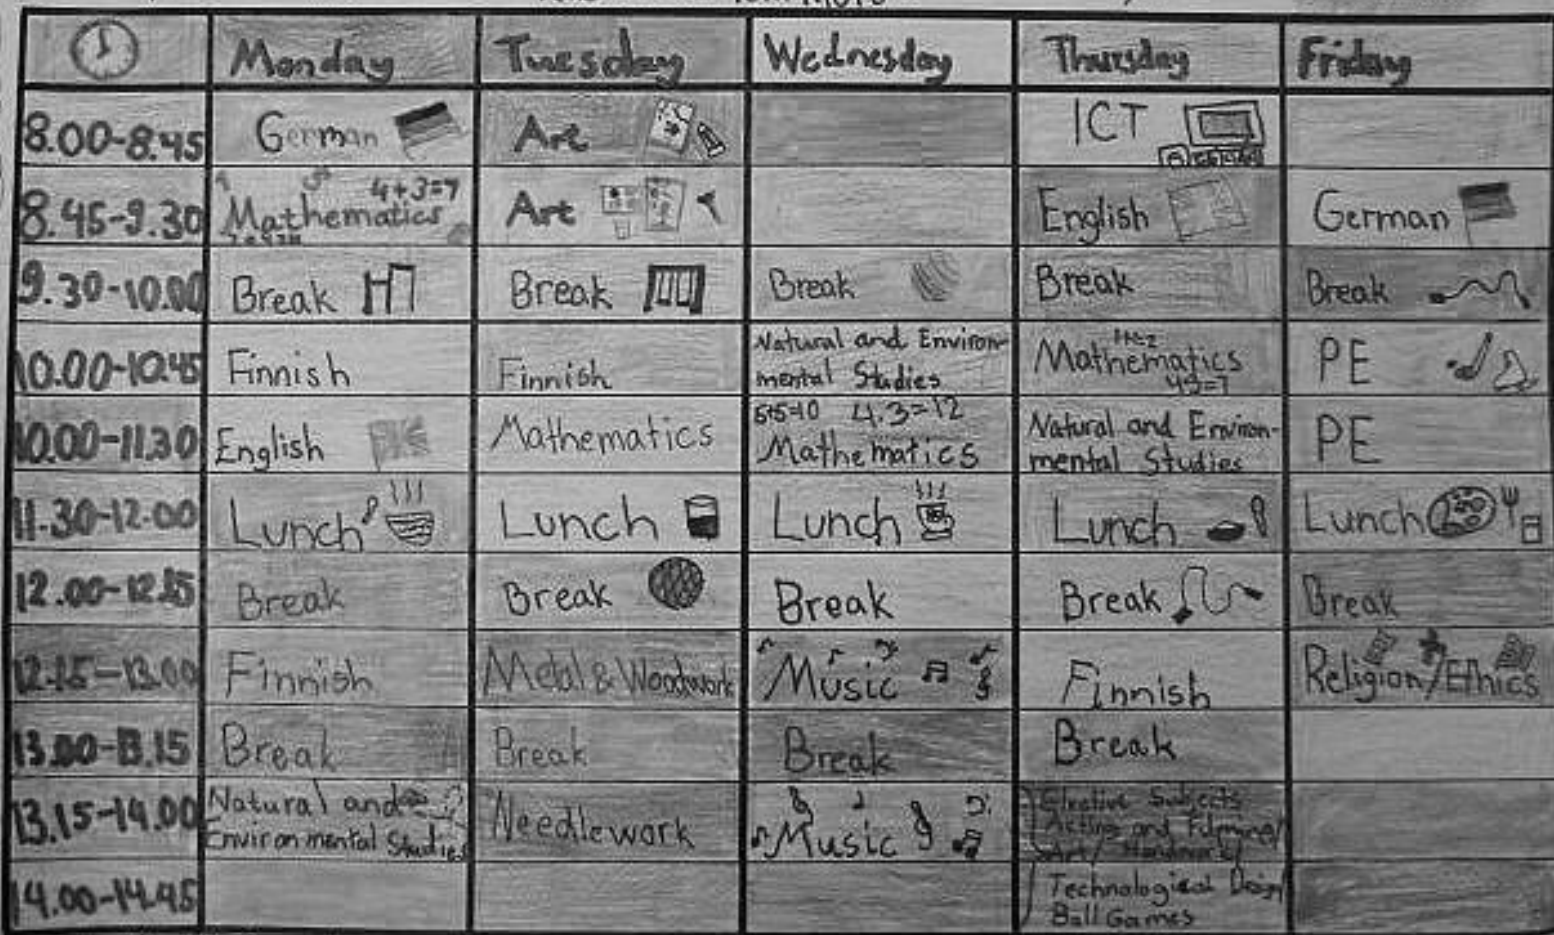 Monday Tuesday Wednesday Thursday Friday
8.00-8.45 German Art ICT
8.45-9.30 Mathematics 4+3=7 Art English German
9.30-10.00 Break Break Break Break Break
10.00-10.45 Finnish Finnish Natural and Environ-
mental Studies Mathematics PE
10.00-11.30 English Mathematics 5+5=10 4.3=12
Mathematics Natural and Environ-
mental Studies PE
11.30-12.00 Lunch Lunch Lunch Lunch Lunch
12.00-12.15 Break Break Break Break Break
12.15-13.00 Finnish Metal & Woodwork Music Finnish Religion/Ethics
13.00-13.15 Break Break Break Break
13.15-14.00 Natural and
Environmental Studies Needlework Music Elective Subjects
Acting and Filming/
Art/
14.00-14.45 Technological Design/
Ball Games